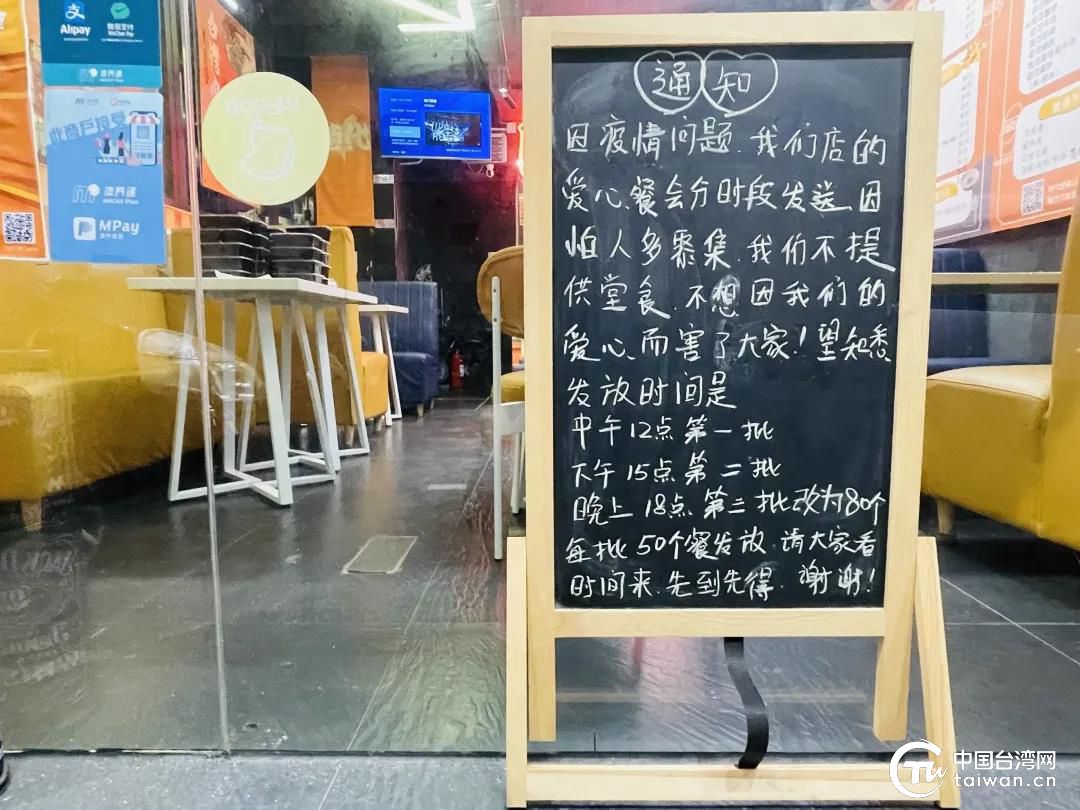 Alipay
微信支付
WeChat Pay
澳门通
MACAU Pass
澳门通
MACAU Pass
MPay
澳门钱包
通知
因疫情问题.我们店的
爱心餐会分时段发送.因
怕人多聚集.我们不提
供堂食.不想因我们的
爱心而害了大家!望知悉
发放时间是
中午12点第一批
下午15点第二批
晚上18点.第三批改为80个
每批50个餐发放.请大家看
时间来.先到先得.谢谢!
中国台湾网
taiwan.cn